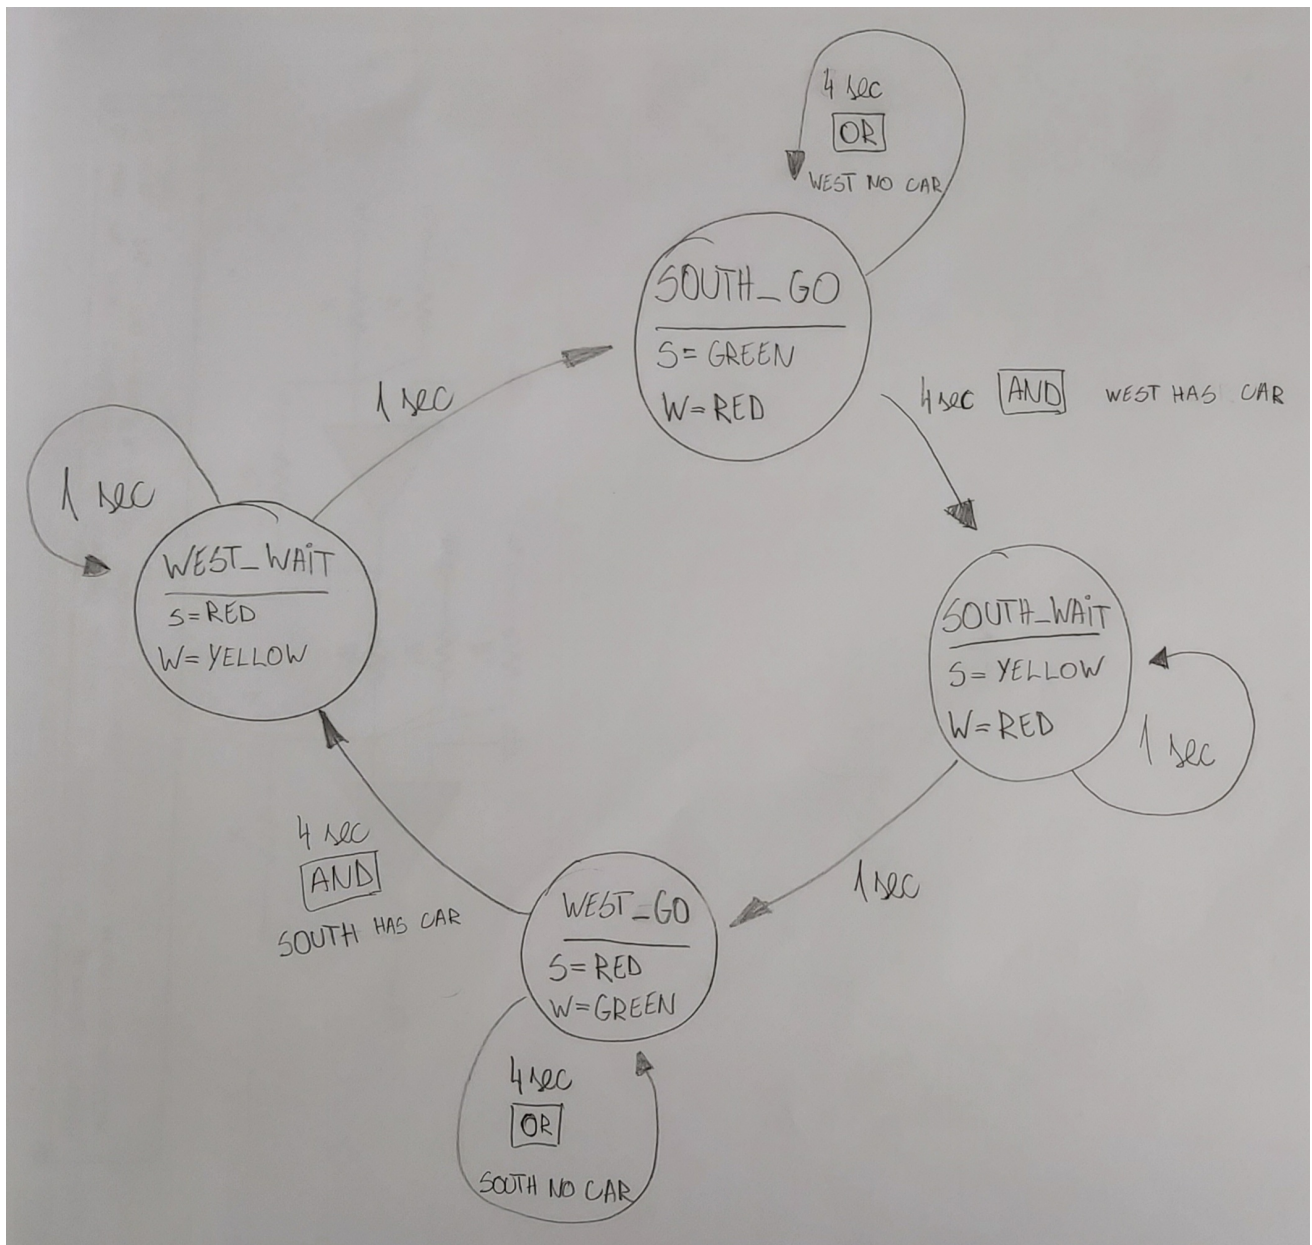 4 sec
OR
WEST NO CAR
SOUTH_GO
S= GREEN
W= RED
1 sec
4 sec AND WEST HAS CAR
1 sec
WEST_WAIT
S=RED
W= YELLOW
SOUTH_WAIT
S= YELLOW
W= RED
1 sec
4 sec
AND
SOUTH HAS CAR
1 sec
WEST_GO
S= RED
W= GREEN
4 sec
OR
SOUTH NO CAR